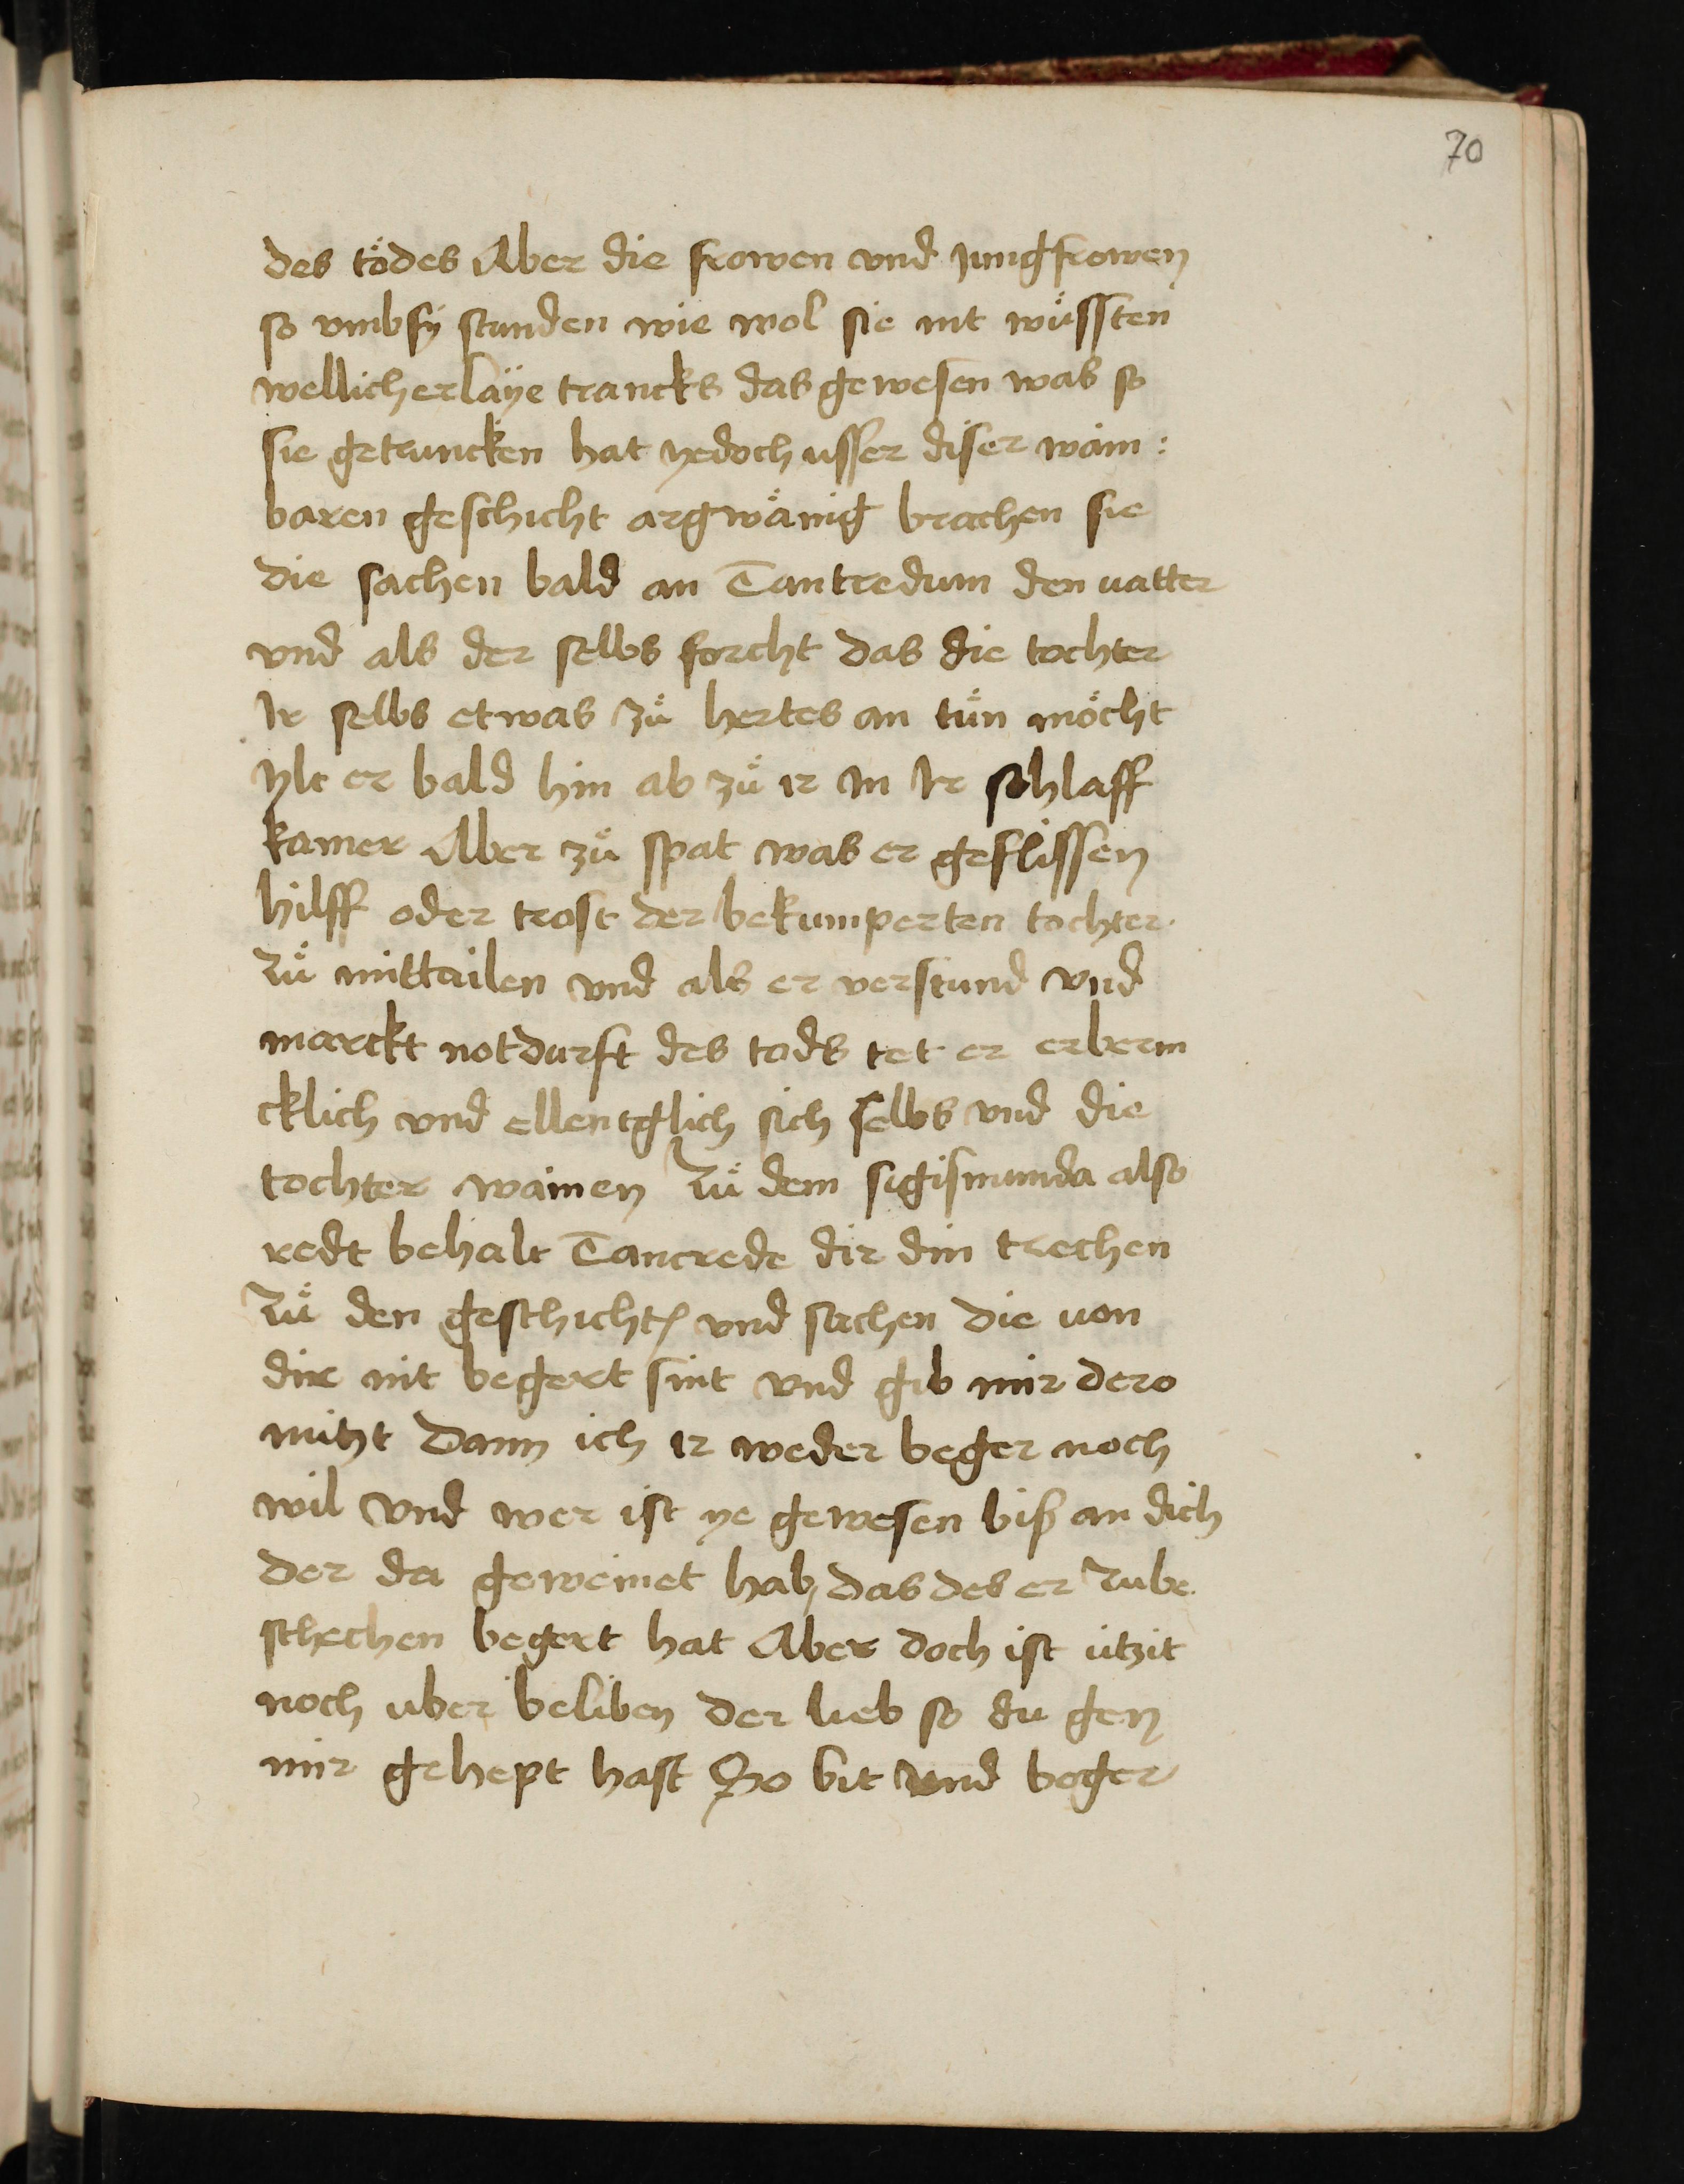 70
des tödes Aber die frowen vnd jungfrowen
so vmb sÿ stunden wie wol sie nit wüssten
wellicherlaÿe trancks das gewesen was so
sie getruncken hat yedoch usser diser wäin:
baren geschicht argwänig brachen sie
die sachen bald an Tantredum den vatter
vnd als der selbs forcht das die tochter
Ir selbs etwas zů hertes an tůn möcht
ylt er bald hin ab zů ir in Ir schlaff
kamer Aber zů spat was er geflissen
hilff oder trost der bekumperten tochter
zů mittailen vnd als er verstund vnd
marckt notdurft des tods tet er erberm
cklich vnd ellentglich sich selbs vnd die
tochter wainen Zů dem sigismunda also
redt behalt Tancrede dir din trechen
Zů den geschichten vnd sachen die von
dir nit begert sint vnd gib mir dero
nützt dann ich ir weder beger noch
wil vnd wer ist ye gewesen biß an dich
der da geweinet hab das des er zube
schechen begert hat Aber doch ist ützit
noch uber beliben der lieb so du gen
mir gehept hast So bit vnd beger